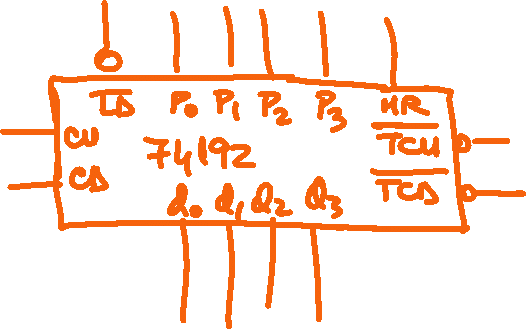 L̅D̅ P₀ P₁ P₂ P₃ MR
CU T̅C̅U̅
74192
CD T̅C̅D̅
Q₀ Q₁ Q₂ Q₃